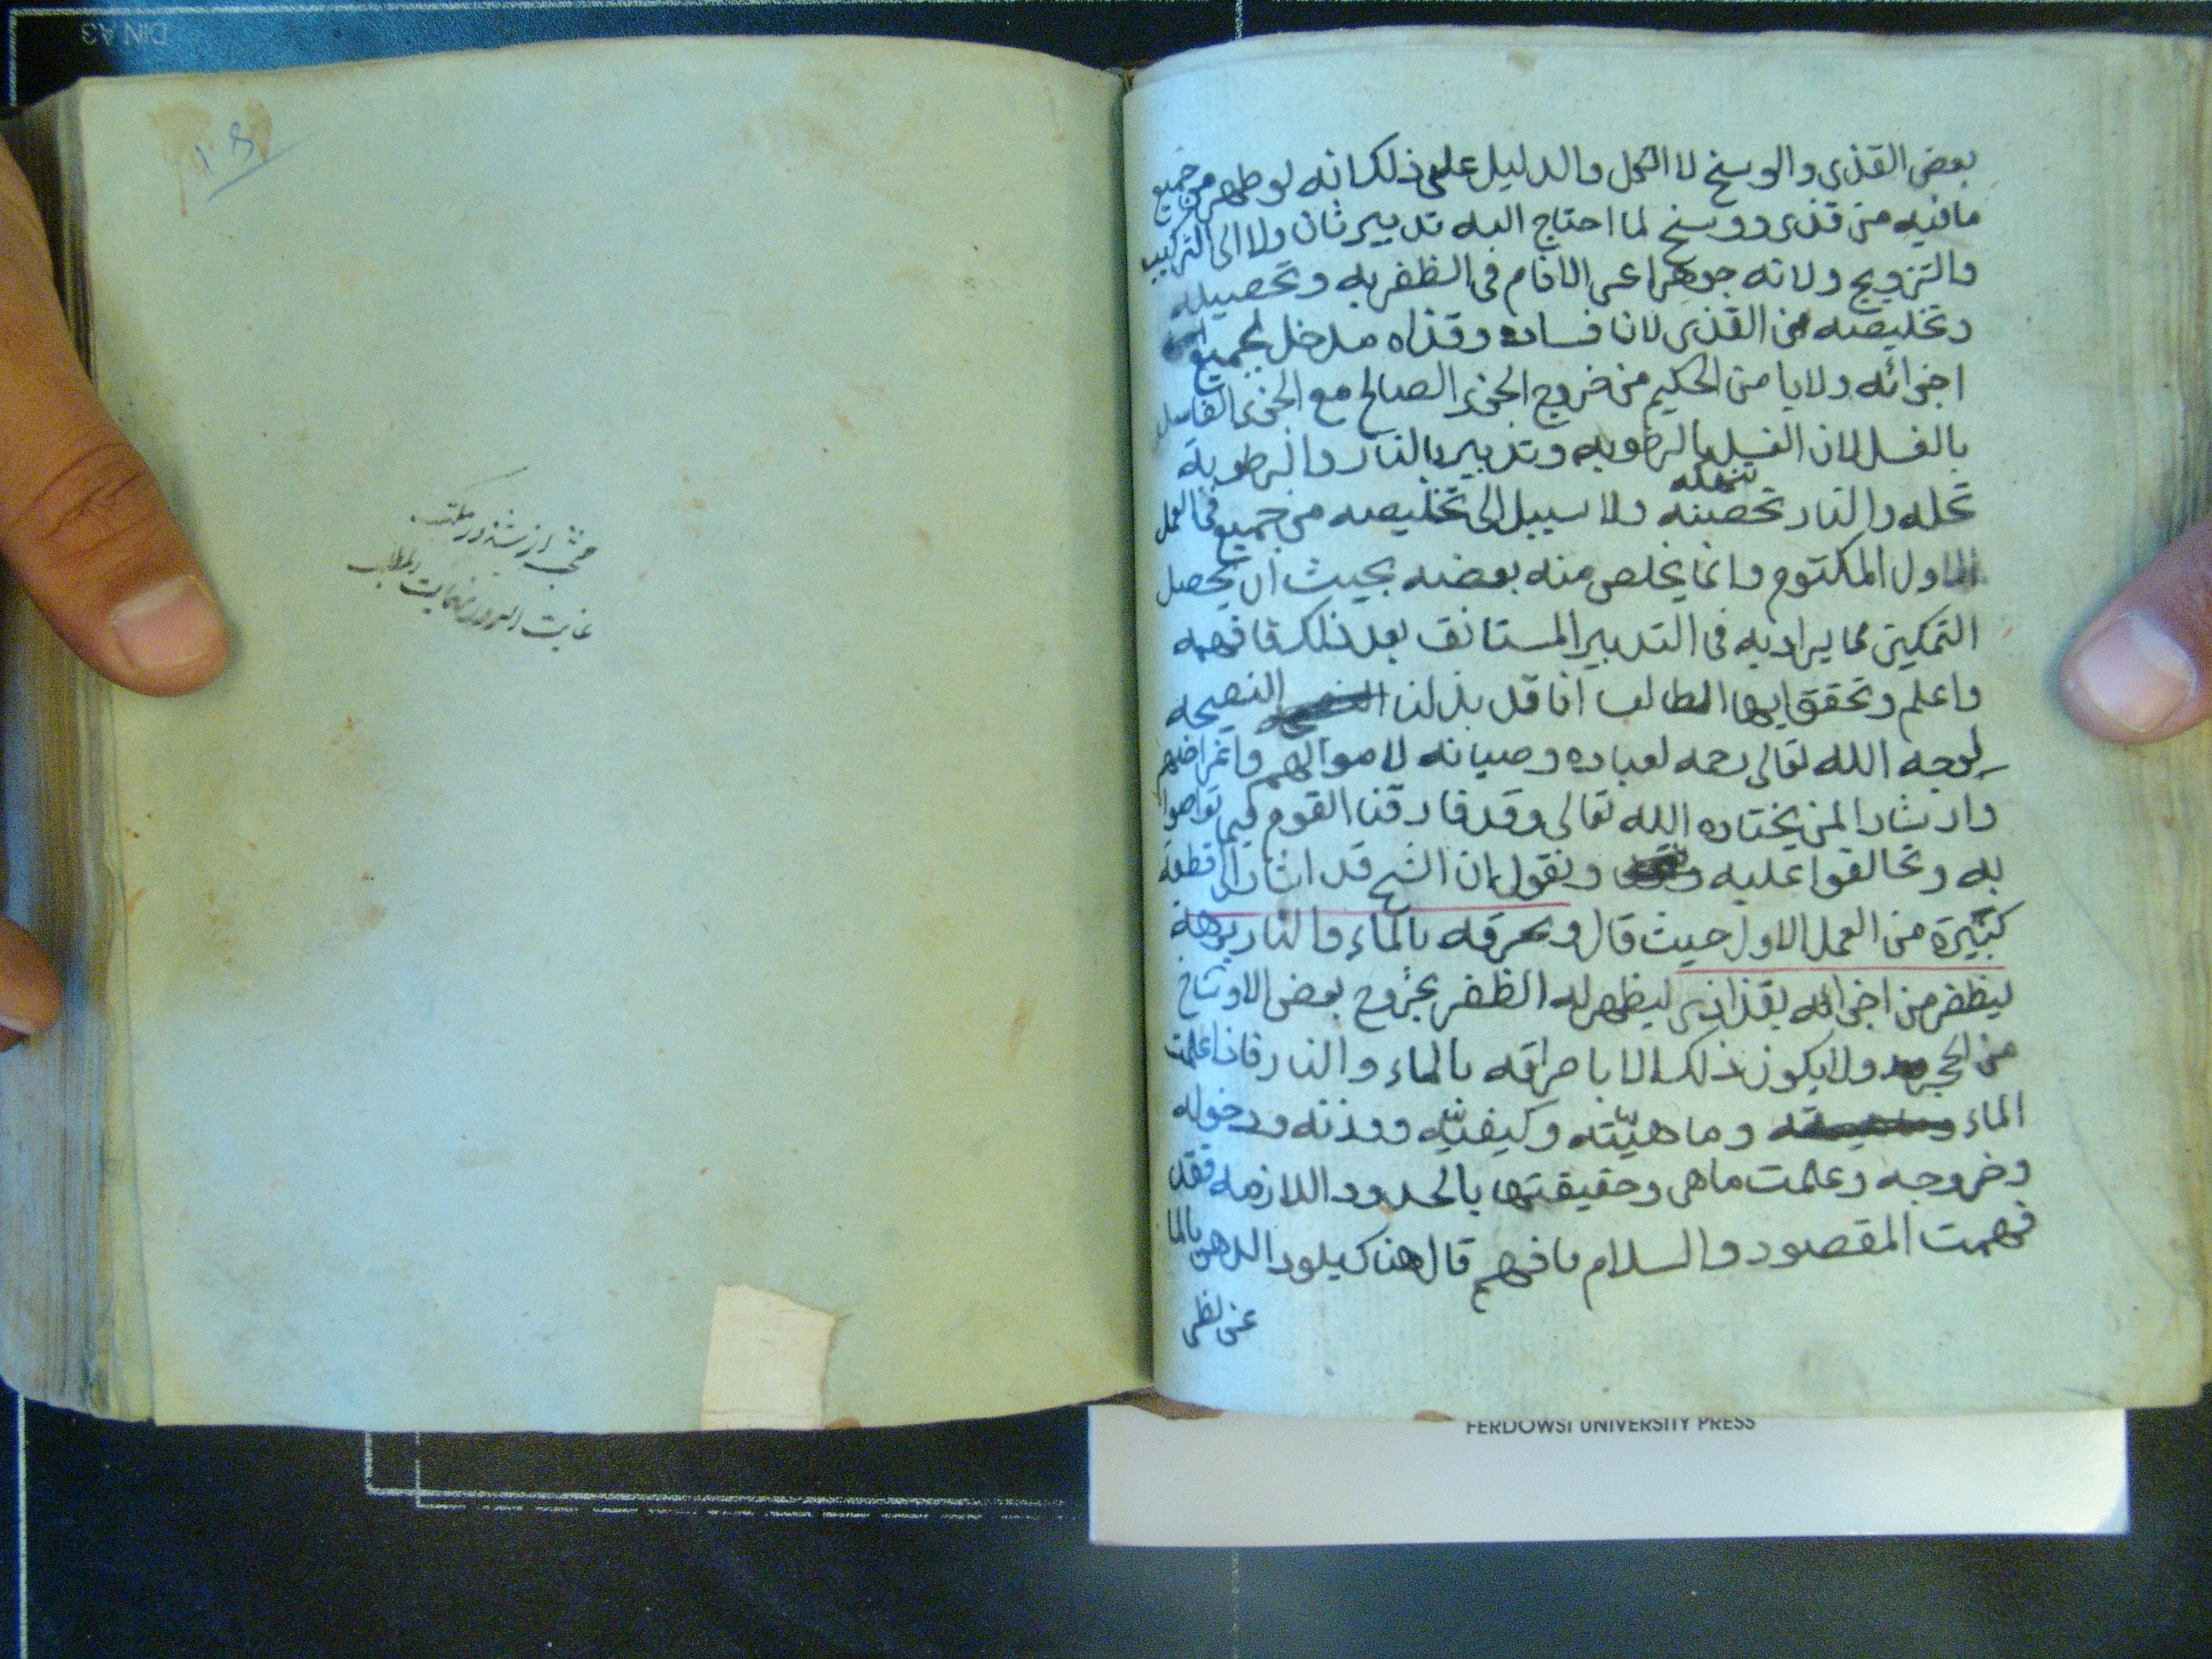 بعض القذى والوسخ لا الكل والدليل على ذلك انه لو طهر من جميع
ما فيه من قذى ووسخ لما احتاج اليه تدبير ثان ولا الى التركيب
والتزويج ولانه جوهرا عن الافام فى الظفر به وتحصيله
وتخليصه من القذى لان فساده وقذاه مدخل لجميع
اجزائه ولا يا من الحكيم من خروج الجزء الصالح مع الجزء الفاسد
بالغسل لان الغسل بالرطوبه وتدبير بالنار والرطوبة
تحله والنار تحصبنه ولا سبيل الى تخليصه من جميع فى العمل
الاول المكتوم وانما يخلص منه بعضه بحيث ان يحصل
التمكين مما يراد به فى التدبير المستانف بعد ذلك فافهمه
واعلم وتحقق ايها الطالب انا قد بذلنا النصيحه
لوجه الله تعالى رحمه لعباده وصيانه لاموالهم واغراضهم
وارشادا لمن يختاره الله تعالى وقد فارقنا القوم فيما تواصوا
به وتحالفوا عليه ونقول ان الشيخ قد اشار الى قطعة
كبيرة من العمل الاول حيث قال ونحرقه بالماء والنار برهة
ليظفر من اجزائه بقذاذى ليظهر له الظفر بخروج بعض الاوساخ
من الحجر ولا يكون ذلك الا باحراقه بالماء والنار فاذا علمت
الماء وماهيّته وكيفيّته ووزنه ودخوله
وخروجه وعلمت ما هى وحقيقتها بالحدود اللازمه فقد
فهمت المقصود والسلام فافهم قال هناك يلود الدهن بالما
DIN A3
FERDOWSI UNIVERSITY PRESS